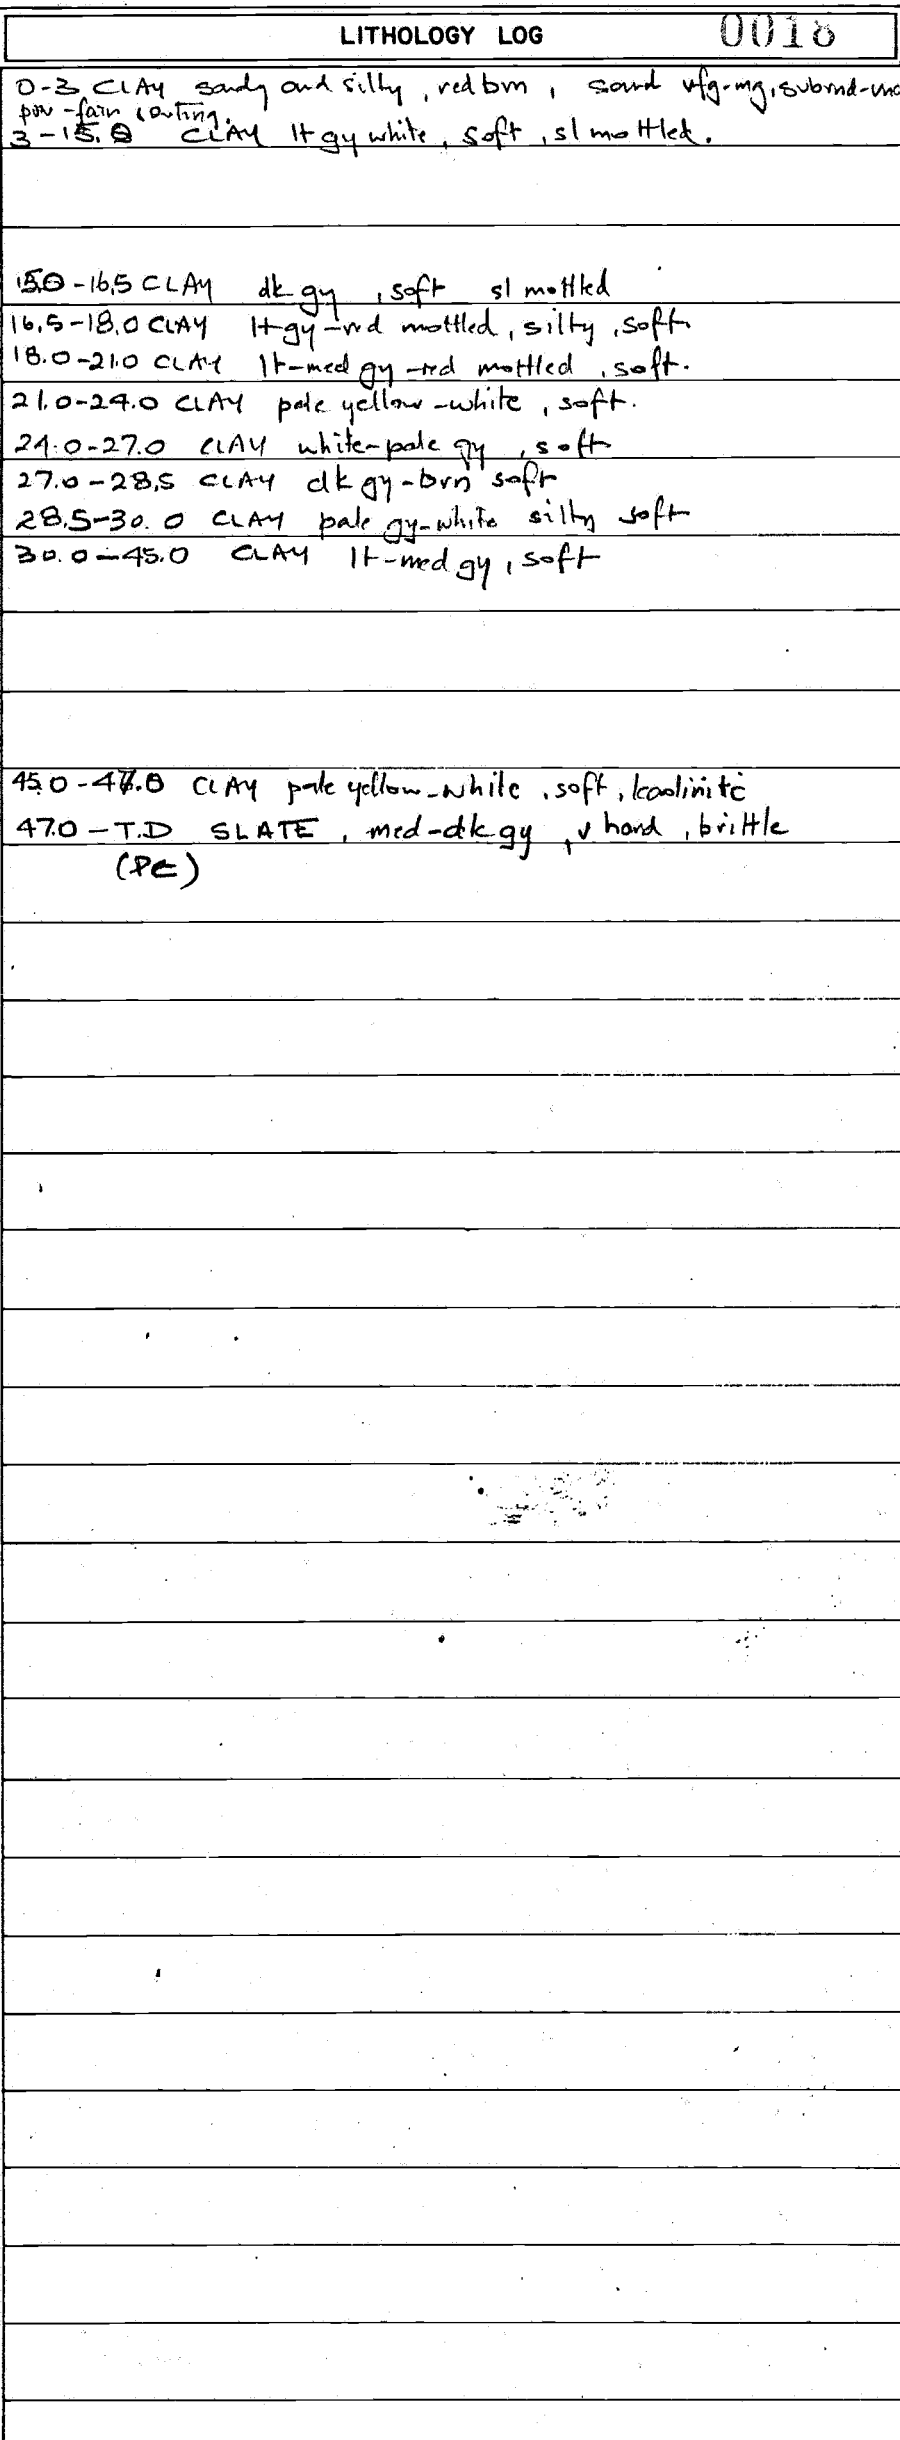 LITHOLOGY LOG 0018
0-3 CLAY sandy and silty, red brn, sand vfg-mg, subrnd-rnd
poor-fair sorting.
3-15.0 CLAY lt gy white, soft, sl mottled.
15.0-16.5 CLAY dk gy, soft sl mottled
16.5-18.0 CLAY lt gy-red mottled, silty, soft
18.0-21.0 CLAY lt-med gy-red mottled, soft.
21.0-24.0 CLAY pale yellow-white, soft.
24.0-27.0 CLAY white-pale gy, soft
27.0-28.5 CLAY dk gy-brn soft
28.5-30.0 CLAY pale gy-white silty soft
30.0-45.0 CLAY lt-med gy, soft
45.0-47.0 CLAY pale yellow-white, soft, kaolinitic
47.0-T.D SLATE, med-dk gy, v hard, brittle
(P∈)